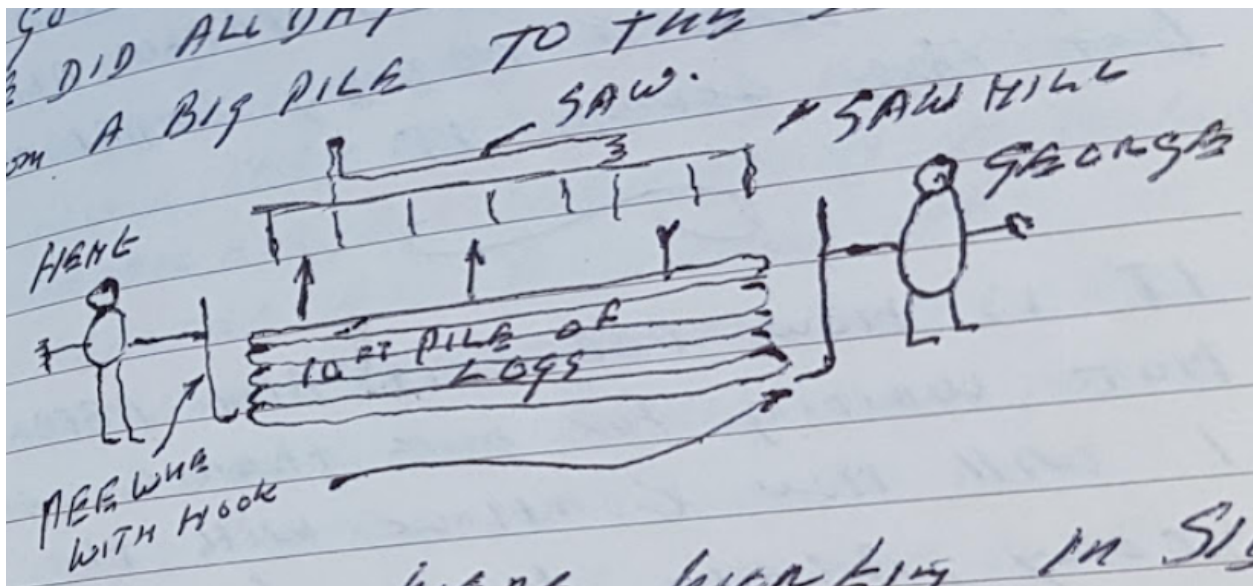 GO
E DID ALL DAY
OM A BIG PILE TO THE
SAW.
SAW MILL
GEORGE
HENK
10 FT PILE OF
LOGS
PEEWHE
WITH HOOK
WORKING IN